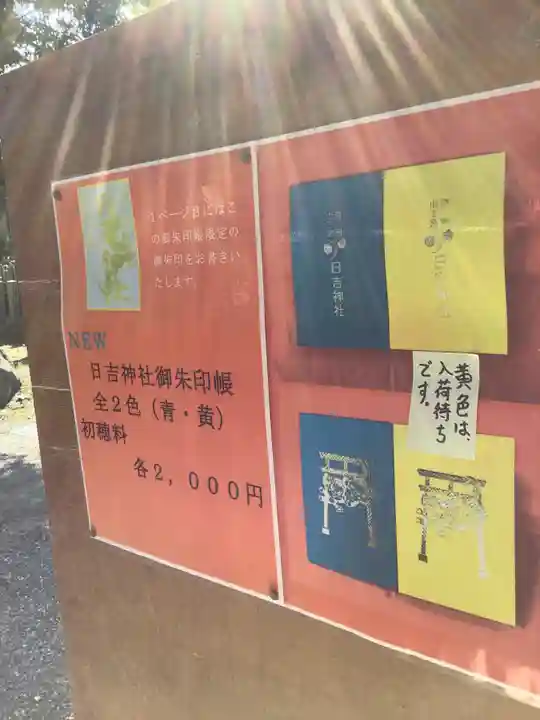 1ページ目にはこ
の御朱印帳限定の
御朱印をお書きい
たします。
NEW
日吉神社御朱印帳
全2色（青・黄）
初穂料
各2，000円
日吉神社
黄色は、
入荷待ち
です。